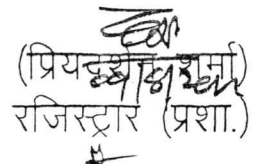 (प्रियदर्शिनी शर्मा)
रजिस्ट्रार (प्रशा.)